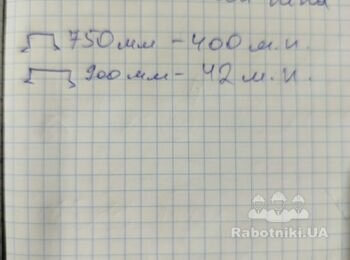 750 мм - 400 м.п.
900 мм - 42 м.п.
Rabotniki.UA